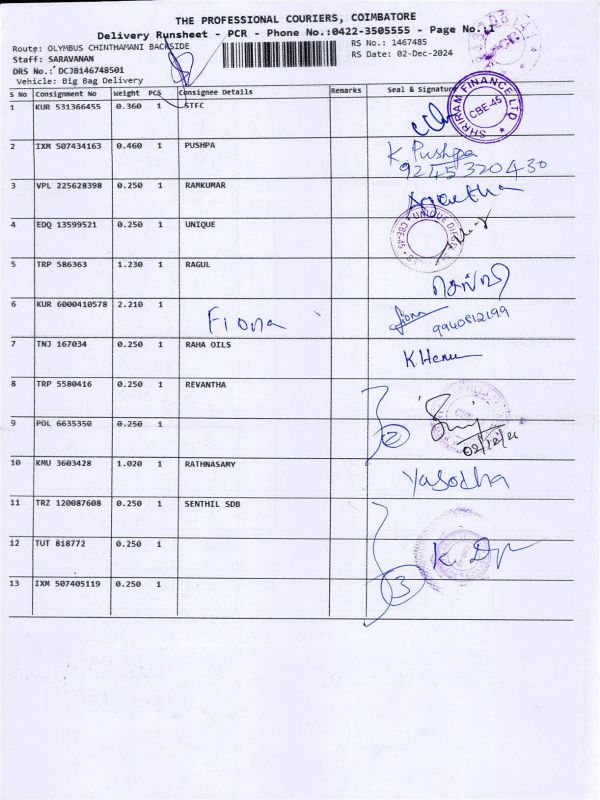 THE PROFESSIONAL COURIERS, COIMBATORE
Delivery Runsheet - PCR - Phone No.:0422-3505555 - Page No.:
Route: OLYMBUS CHINTHAMANI BACKSIDE
RS No.: 1467485
Staff: SARAVANAN
RS Date: 02-Dec-2024
DRS No.: DCJB146748501
Vehicle: Big Bag Delivery
S No Consignment No Weight PCS Consignee Details Remarks Seal & Signature
1 KUR 531366455 0.360 1 STFC
SHRIRAM FINANCE LTD CBE-45
2 IXM 507434163 0.460 1 PUSHPA K. Pushpa
9245320430
3 VPL 225628398 0.250 1 RAMKUMAR
4 EDQ 13599521 0.250 1 UNIQUE
UNIQUE CBE-45
5 TRP 586363 1.230 1 RAGUL
6 KUR 6000410578 2.210 1
Fiona Fiona 9940812199
7 TNJ 167034 0.250 1 RAHA OILS K.Hema
8 TRP 5580416 0.250 1 REVANTHA
9 POL 6635350 0.250 1 2
10 KMU 3603428 1.020 1 RATHNASAMY Yasodha
11 TRZ 120087608 0.250 1 SENTHIL SDB
12 TUT 818772 0.250 1
13 IXM 507405119 0.250 1 3